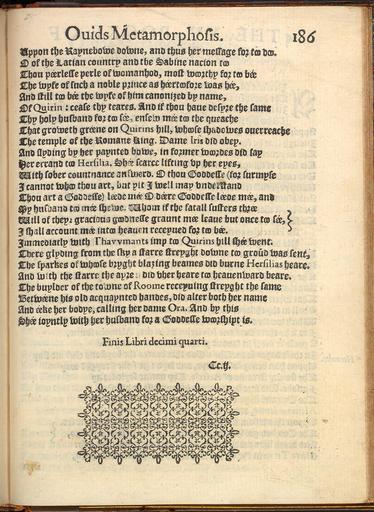 Ouids Metamorphosis. 186
Uppon the Raynebowe downe, and thus her message for too doo.
O of the Latian country and the Sabine nacion too
Thou peerlesse perle of womanhod, most worthy for too bee
The wyfe of such a noble prince as heertofore was hee,
And still too bee the wyfe of him canonized by name,
Of Quirin: cease thy teares. And if thou haue desyre the same
Thy holy husband for too see, ensew mee too the queache
That groweth greene on Quirins hill, whose shadowes ouerreache
The temple of the Romane king. Dame Iris did obey.
And slyding by her paynted bowe, in former woordes did say
Her errand too Hersilia. Shee scarce lifting vp her eyes,
With sober countnance answerd. O thou Goddesse (for surmyse
I cannot who thou art, but yit I well may vnderstand
Thou art a Goddesse) leede mee O deere Goddesse leede mee, and
My husband too mee shewe. Whom if the fatall susters three
Will of theyr gracious goodnesse graunt mee leaue but once too see,
I shall account mee intoo heauen receyued for too bee.
Immediatly with Thavvmants imp too Quirins hill shee went.
There glyding from the sky a starre streyght downe too groũd was sent,
The sparkes of whose bryght blazing beames did burne Hersilias heare.
And with the starre the ayre did vher heare too heauenward beare.
The buylder of the towne of Roome receyuing streyght the same
Betweene his old acquaynted handes, did alter both her name
And eeke her bodye, calling her dame Ora. And by this
Shee ioyntly with her husband for a Goddesse worshipt is.
Finis Libri decimi quarti.
Cc.ij.